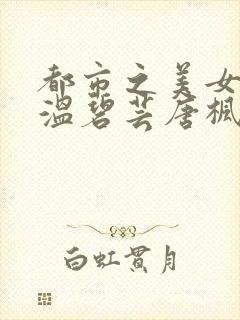 都市之美女
温碧芸唐枫
白虹贯月